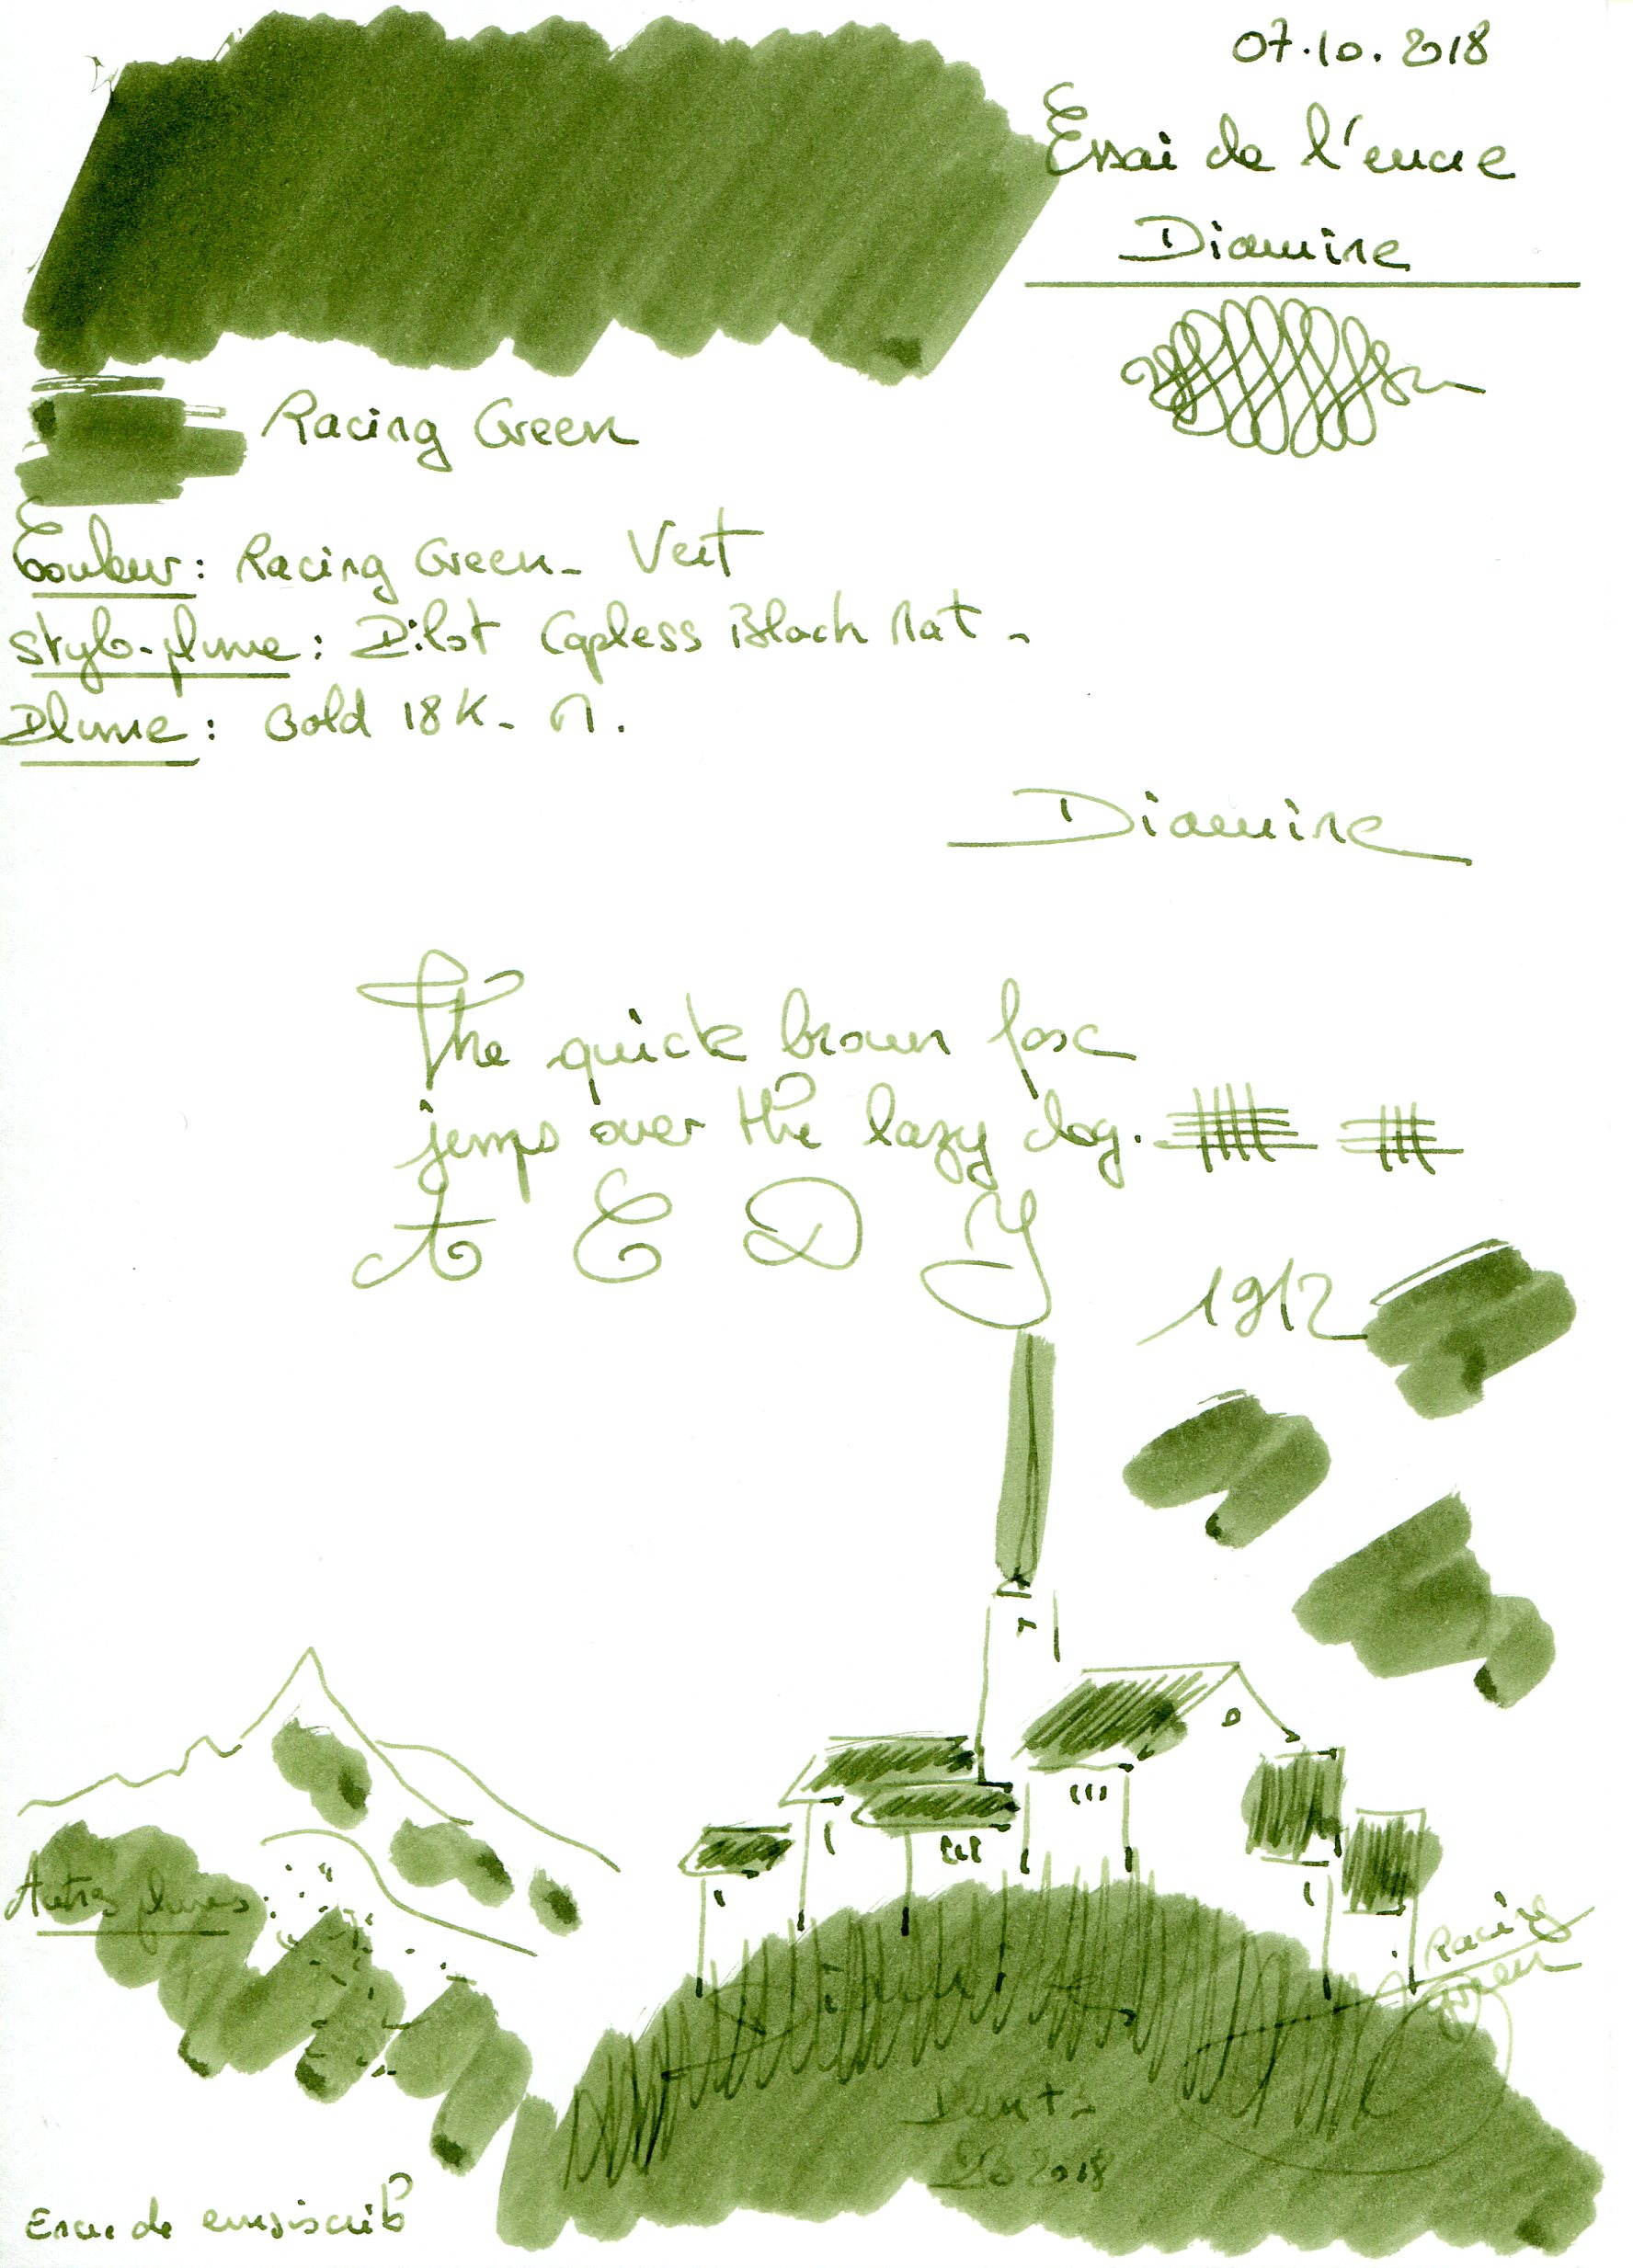 07.10.2018
Essai de l'encre
Diamine
Racing Green
Couleur: Racing Green - Vert
Stylo-plume: Pilot Capless Black Mat -
Plume: Gold 18K - M.
Diamine
The quick brown fox
jumps over the lazy dog.
A E D Y
1912
Autres plumes:
Racing
Green
Diamine
2018